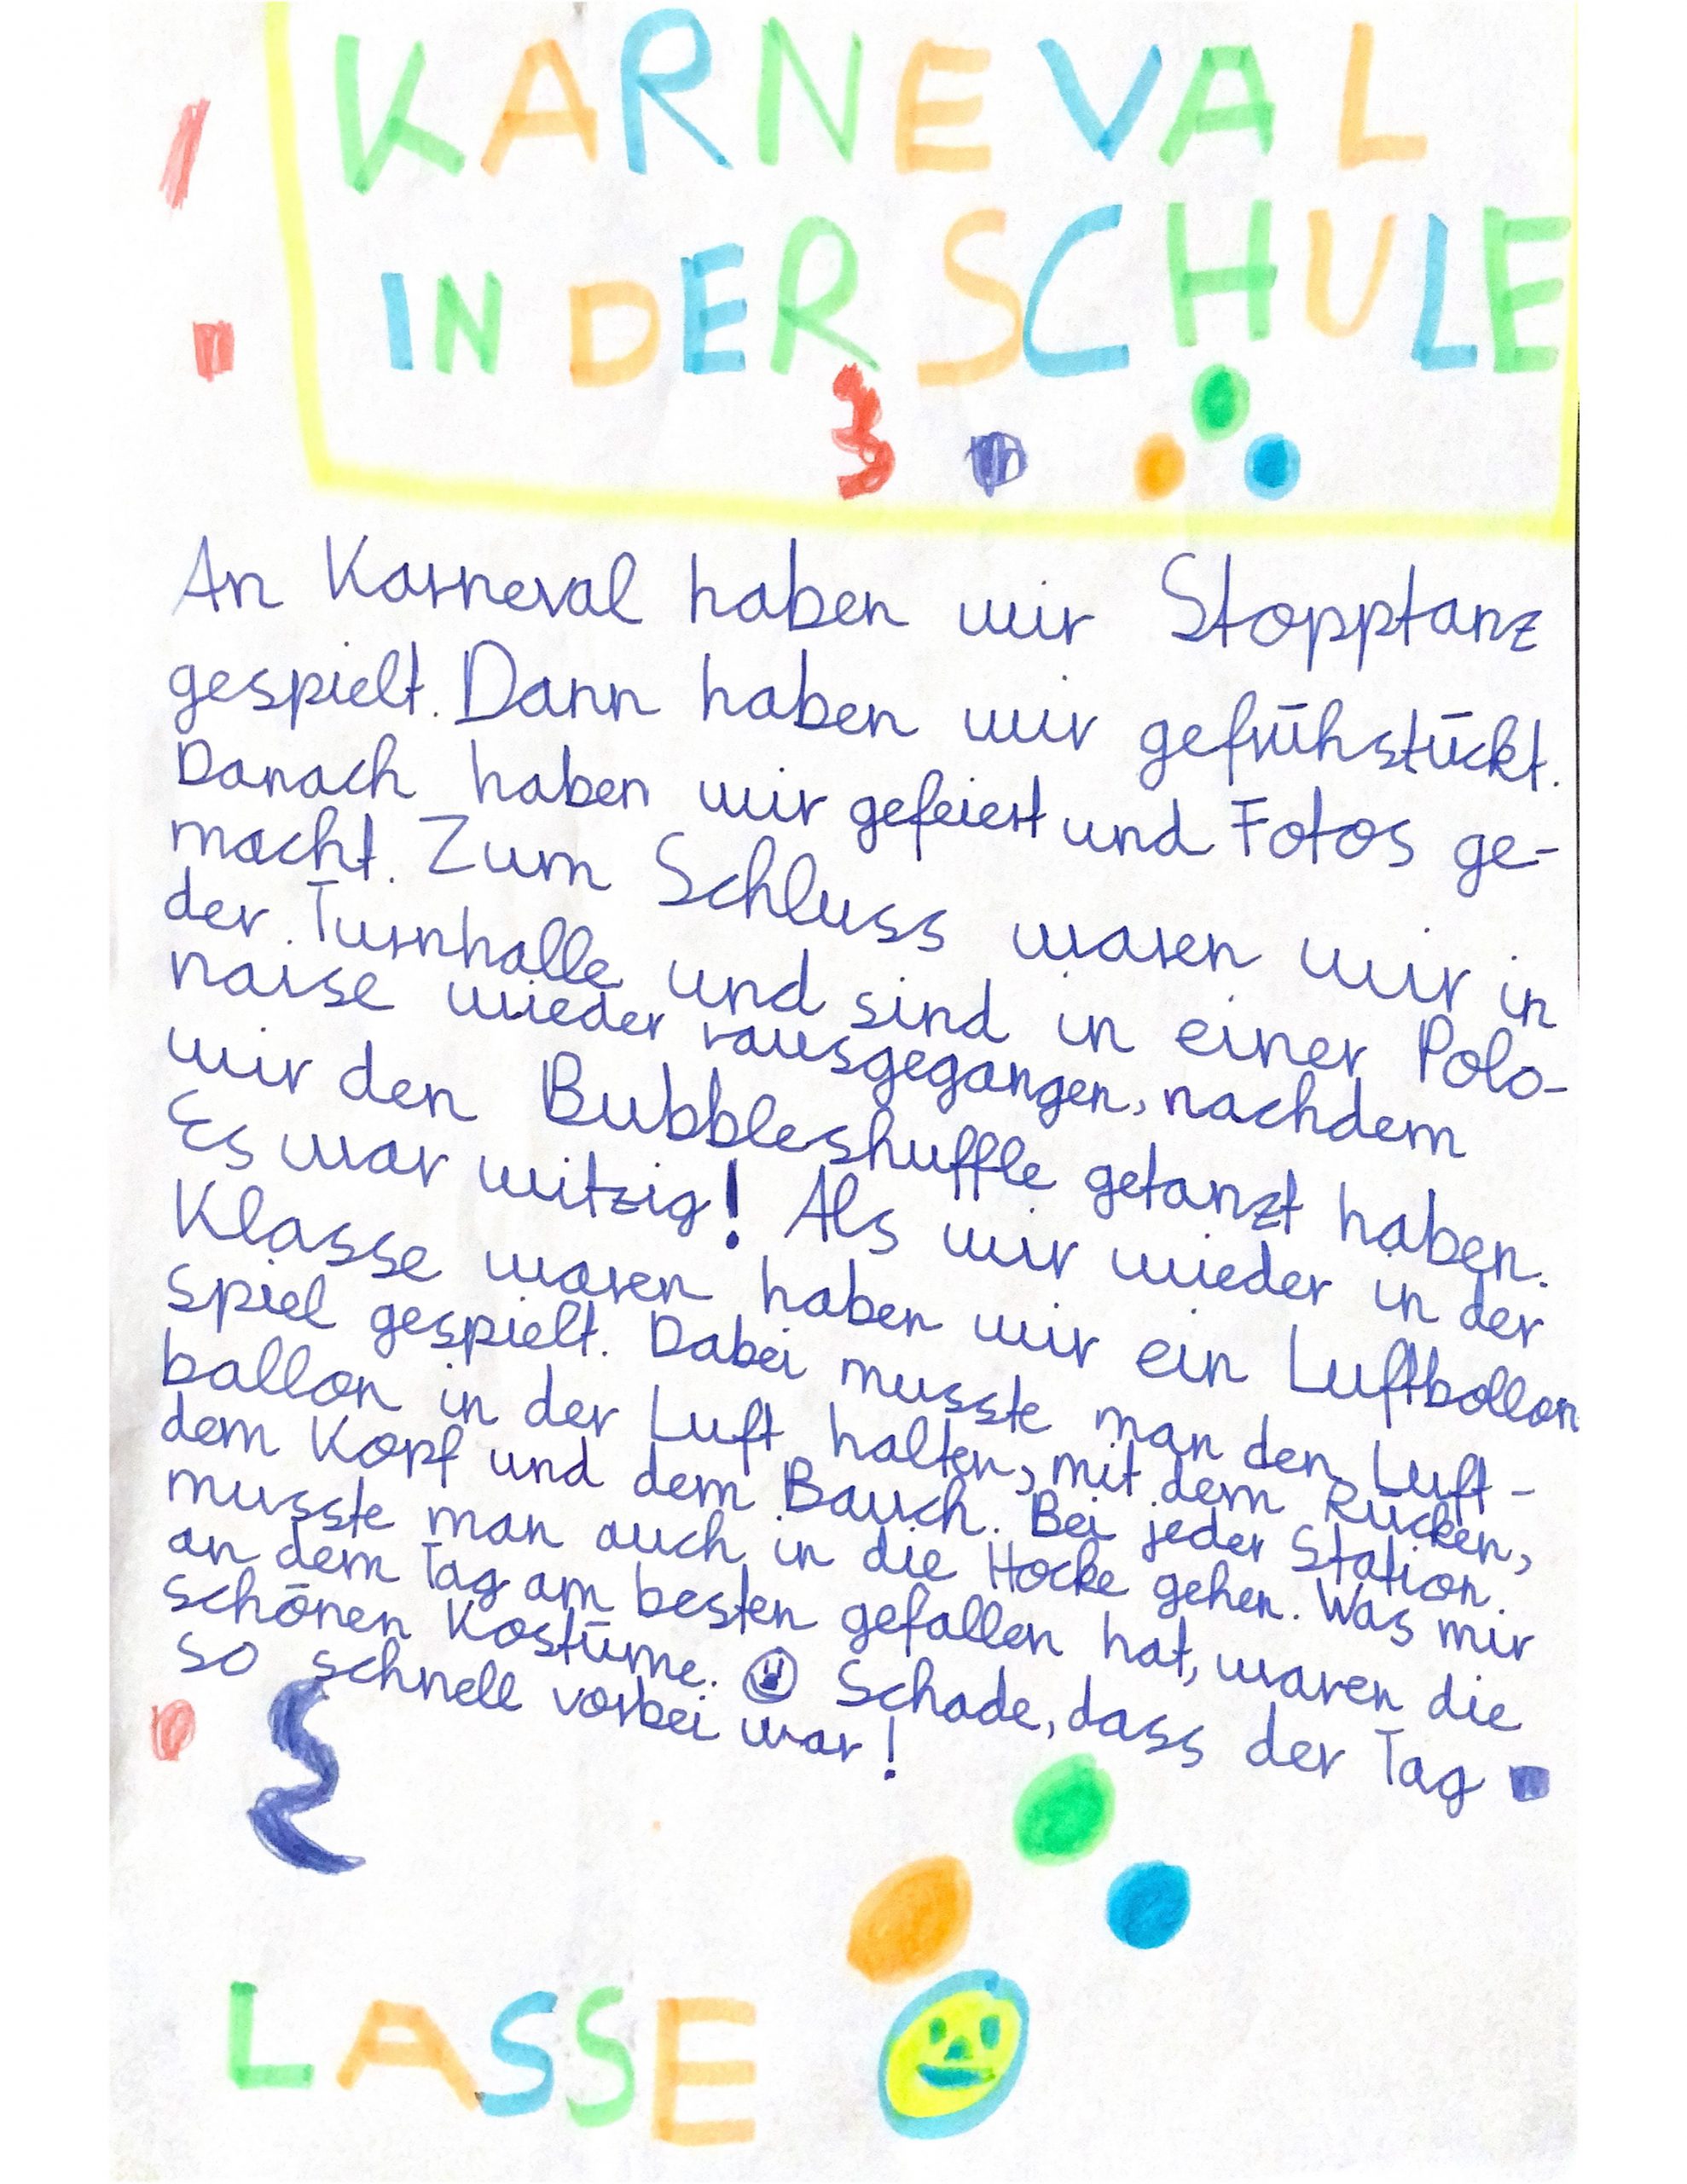 KARNEVAL
IN DER SCHULE
An Karneval haben wir Stopptanz
gespielt. Dann haben wir gefrühstückt.
Danach haben wir gefeiert und Fotos ge-
macht. Zum Schluss waren wir in
der Turnhalle und sind in einer Polo-
naise wieder rausgegangen, nachdem
wir den Bubbleshuffle getanzt haben.
Es war witzig! Als wir wieder in der
Klasse waren haben wir ein Luftballon
spiel gespielt. Dabei musste man den Luft-
ballon in der Luft halten, mit dem Rücken,
dem Kopf und dem Bauch. Bei jeder Station
musste man auch in die Hocke gehen. Was mir
an dem Tag am besten gefallen hat, waren die
schönen Kostüme. Schade, dass der Tag
so schnell vorbei war!
LASSE